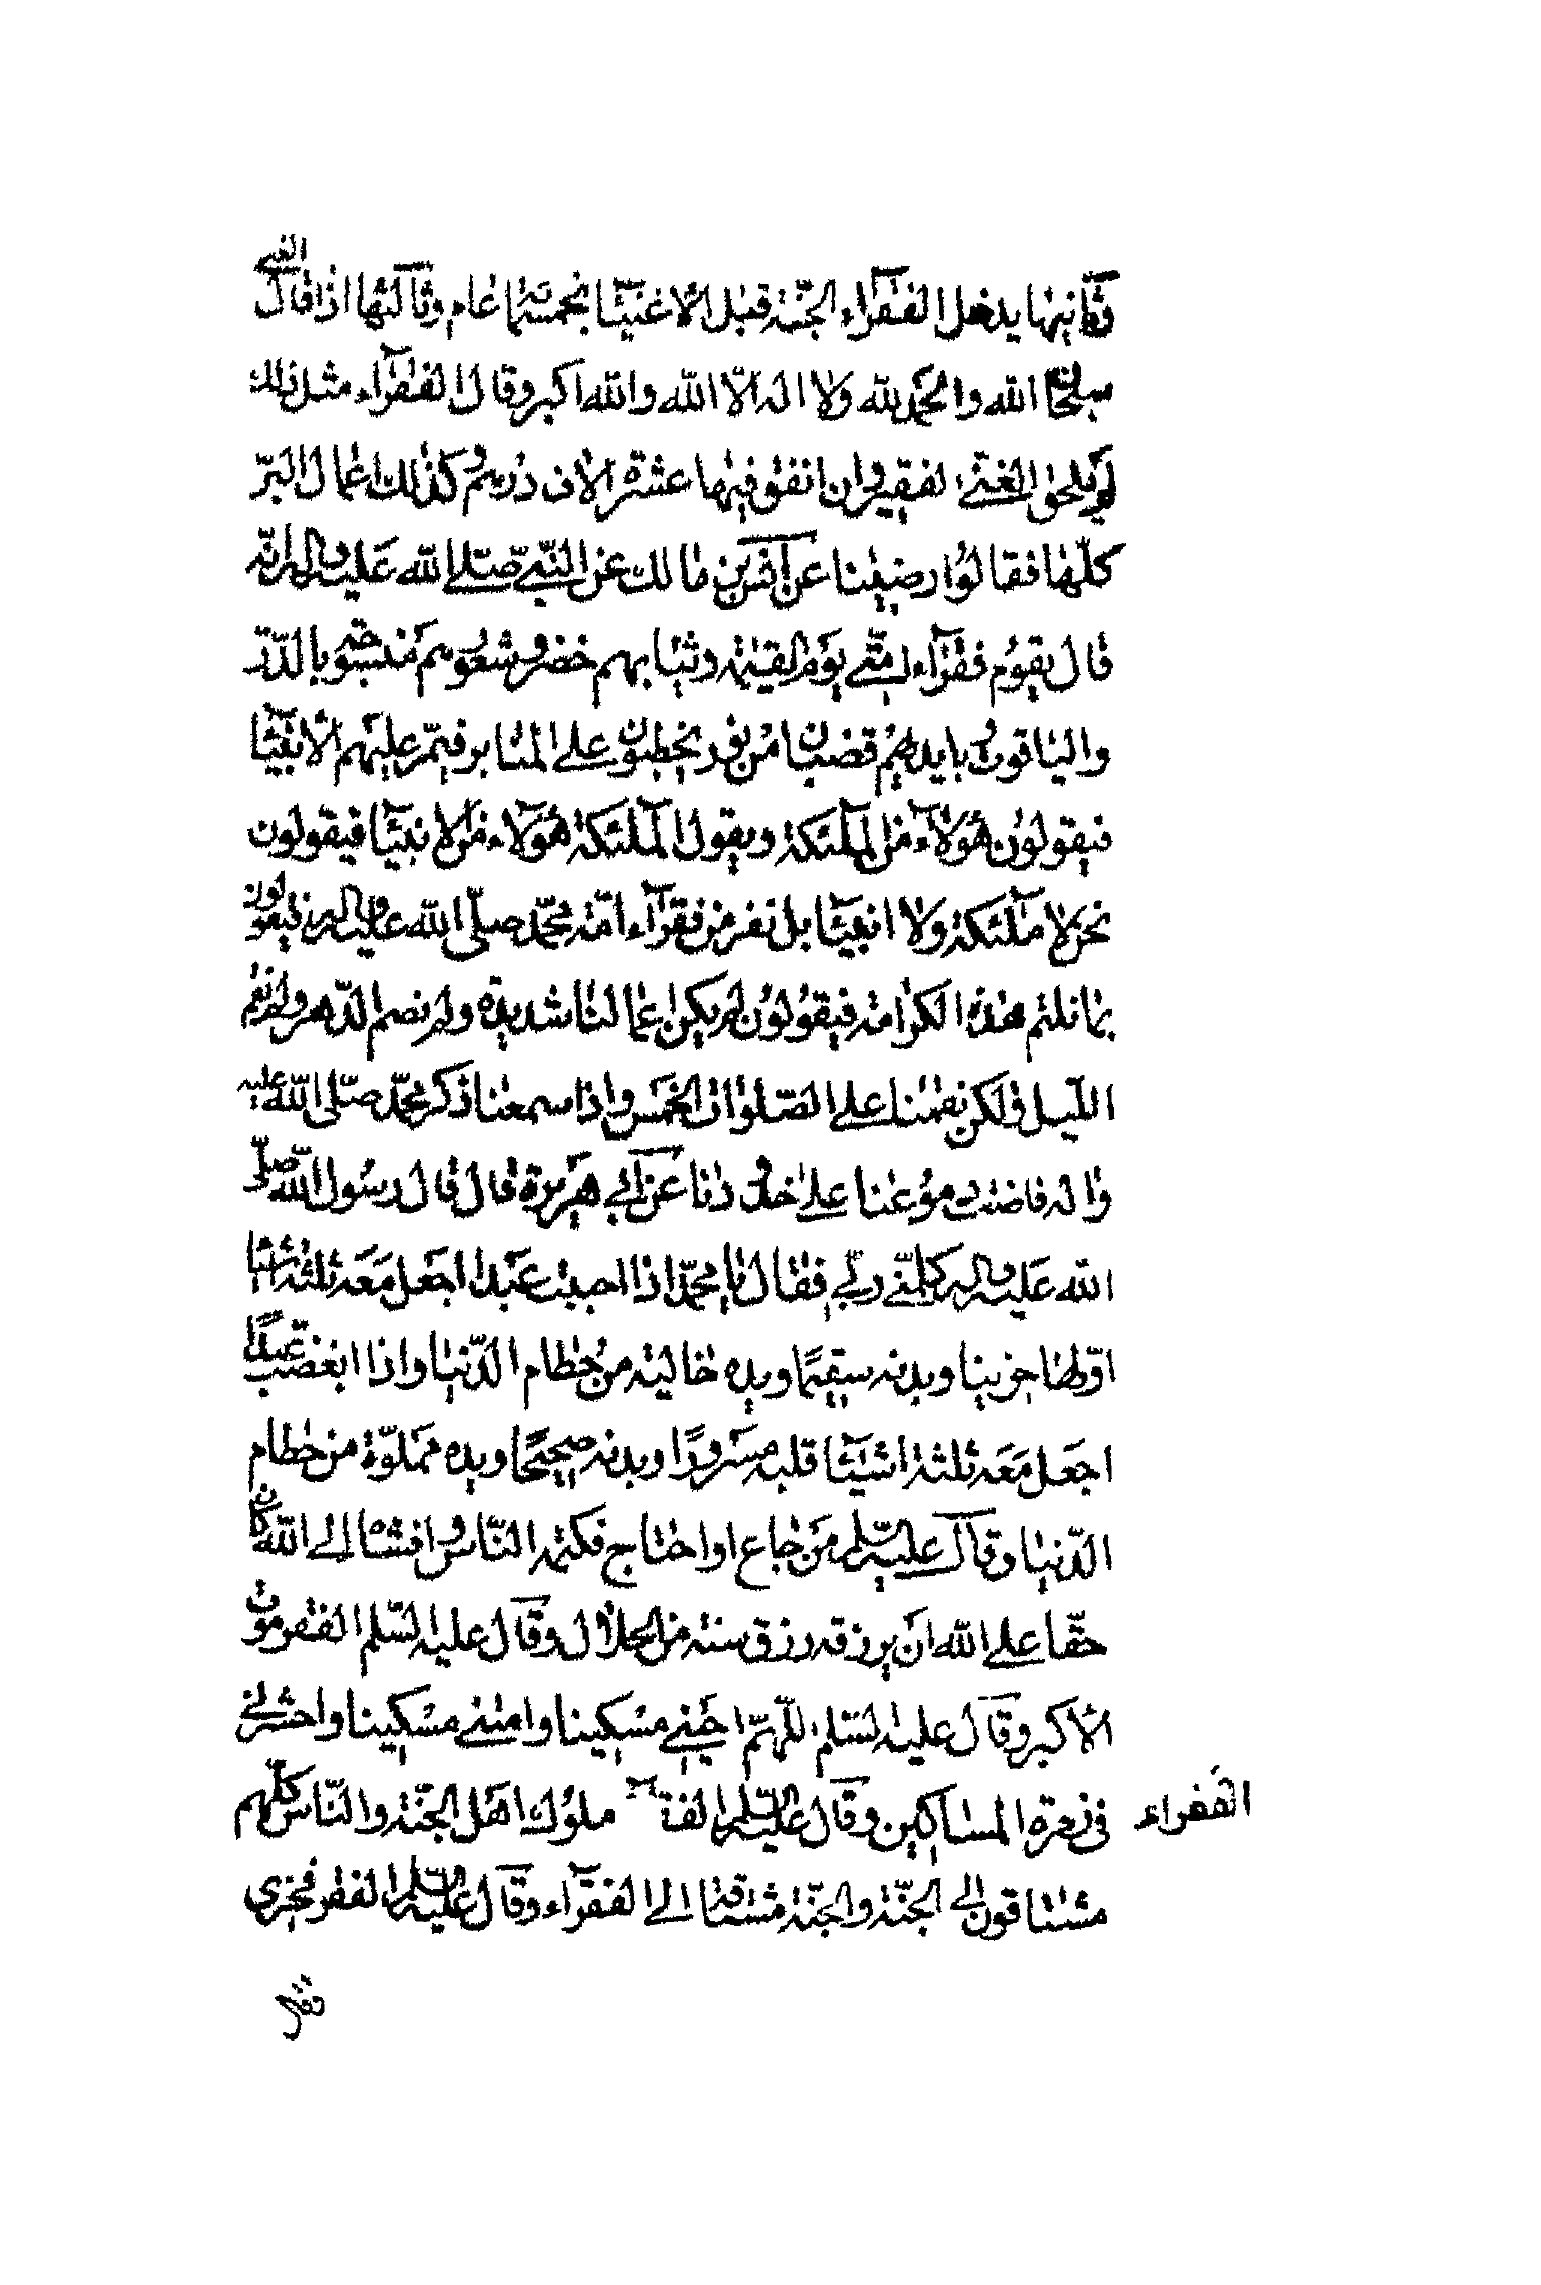 وثانيها يدخل الفقرآء الجنّة قبل الاغنيآء بخمسمائة عام وثالثها اذا قال الغني
سبحان الله والحمد لله ولا اله الّا الله والله اكبر وقال الفقرآء مثل ذلك
لم يلحق الغني الفقير وان انفق فيها عشرة الاف درهم وكذلك اعمال البرّ
كلّها فقالوا رضينا عن انس بن مالك عن النبيّ صلّى الله عليه واله انّه
قال يقوم فقرآء امّتي يوم القيمة وثيابهم خضر وشعورهم منسوجة بالدّرّ
والياقوت وبايديهم قضبان من نور يخطبون على المنابر فيمرّ عليهم الانبيآ
فيقولون هؤلآء من الملئكة ويقول الملئكة هؤلاء من الانبيآ فيقولون
نحن لا ملئكة ولا انبيآ بل نفر من فقرآء امّة محمّد صلّى الله عليه واله فيقولون
بما نلتم هذه الكرامة فيقولون لم يكن اعمالنا شديدة ولم نصم الدّهر ولم نقم
اللّيل ولكن نقمنا على الصّلوات الخمس واذا سمعنا ذكر محمّد صلّى الله عليه
واله فاضت دموعنا على خدودنا عن ابي هريرة قال قال رسول الله صلّى
الله عليه واله كلّمني ربّي فقال يا محمّد اذا احببت عبدا اجعل معه ثلثة اشيآ
قلبه حزينا وبدنه سقيمًا ويده خالية من حطام الدّنيا واذا ابغضت عبدًا
اجعل معه ثلثة اشيآ قلبه مسرورًا وبدنه صحيحًا ويده مملوّة من حطام
الدّنيا وقال عليه السّلم من جاع او احتاج فكتمه النّاس وافشاه الى الله كان
حقّا على الله ان يرزقه رزق سنة من الحلال وقال عليه السّلم الفقر موت
الاكبر وقال عليه السّلم اللّهمّ احيني مسكينا وامتني مسكينا واحشرني
في زمرة المساكين وقال عليه السّلم الفقراء ملوك اهل الجنّة والنّاس كلّهم
مشتاقون الى الجنّة والجنّة مشتاقة الى الفقرآء وقال عليه السّلم الفقر فخري